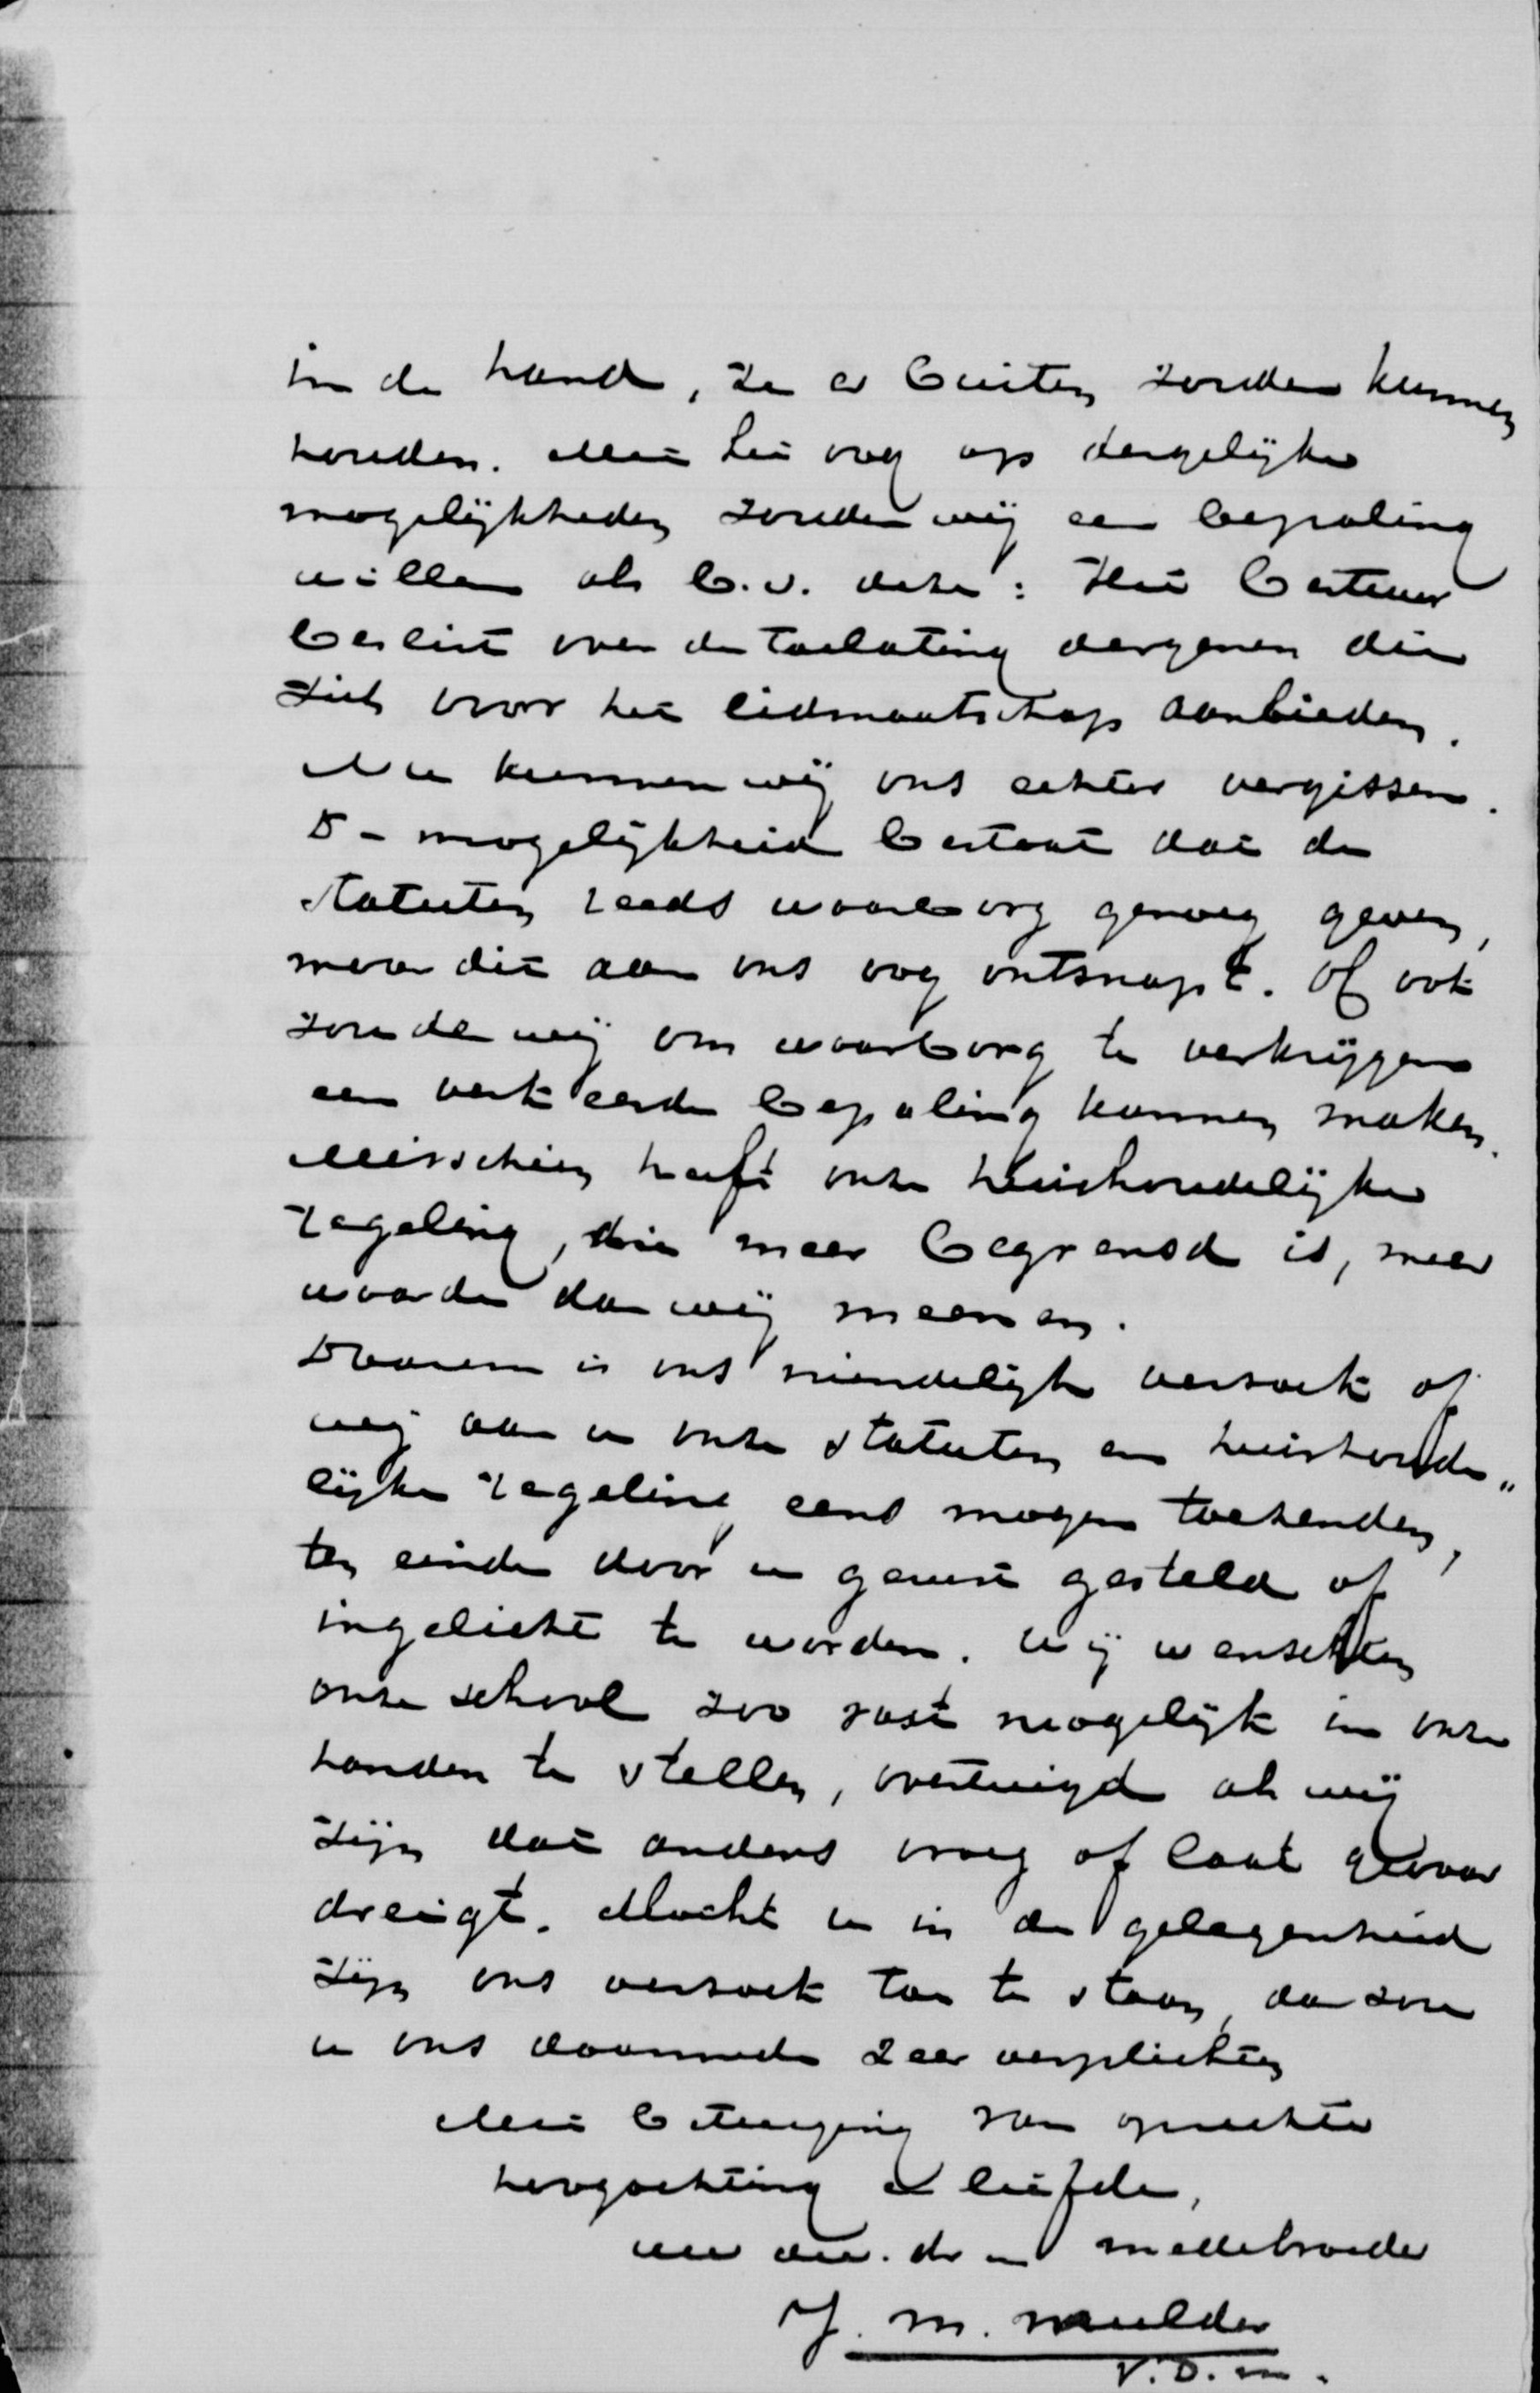 in de hand, ze er buiten zouden kunnen
houden. Met het oog op dergelijke
mogelijkheden zouden wij een bepaling
willen als b.v. deze: Het bestuur
beslist over de toelating dergenen die
zich voor het lidmaatschap aanbieden.
Nu kunnen wij ons echter vergissen.
De mogelijkheid bestaat dat de
statuten reeds waarborg genoeg geven,
maar dit aan ons oog ontsnapt. Of ook
zouden wij om waarborg te verkrijgen
een verkeerde bepaling kunnen maken.
Misschien heeft onze huishoudelijke
regeling, die meer begrensd is, meer
waarde dan wij meenen.
Daarom is ons vriendelijk verzoek of
wij aan u onze statuten en huishoude„
lijke regeling eens mogen toezenden,
ten einde door u gerust gesteld of
ingelicht te worden. Wij wenschten
onze school zoo vast mogelijk in onze
handen te stellen, overtuigd als wij
zijn dat anders vroeg of laat gevaar
dreigt. Mocht u in de gelegenheid
zijn ons verzoek toe te staan, dan zou
u ons daarmede zeer verplichten
Met betuiging van oprechte
hoogachting & liefde,
uw dw. dr en medebroeder
J. M. Mulder
V.D.M.